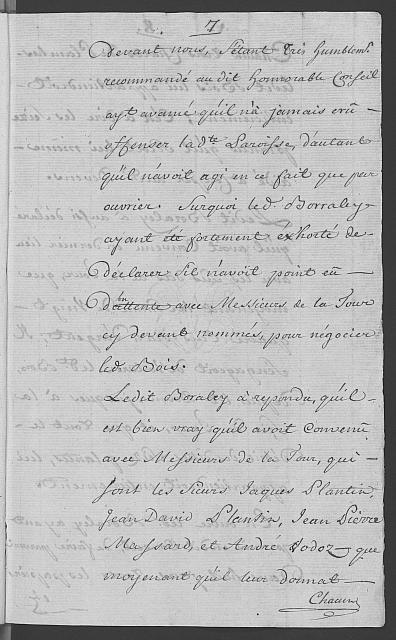 7
devant nous, S'étant Très humblemt.
recommandé au dit honnorable Conseil
ayt avancé qu'il n'a jamais crû
offenser la dte. Paroisse, d'autant
qu'il n'avoit agi en ce fait que par
ouvrier. Surquoi led. Borraley
ayant été fortement éxhorté de
déclarer s'il n'avoit point eû
d'intente avec Messieurs de la Tour
cy devant nommés, pour négocier
led. Bois.
Ledit Boraley à repondu, qu'il
est bien vray qu'il avoit convenû
avec Messieurs de la Tour, qui
sont les Sieurs Jaques Plantin,
Jean David Plantin, Jean Pierre
Massard, et André Dodoz que
moyenant qu'il leur donnat
Chacun